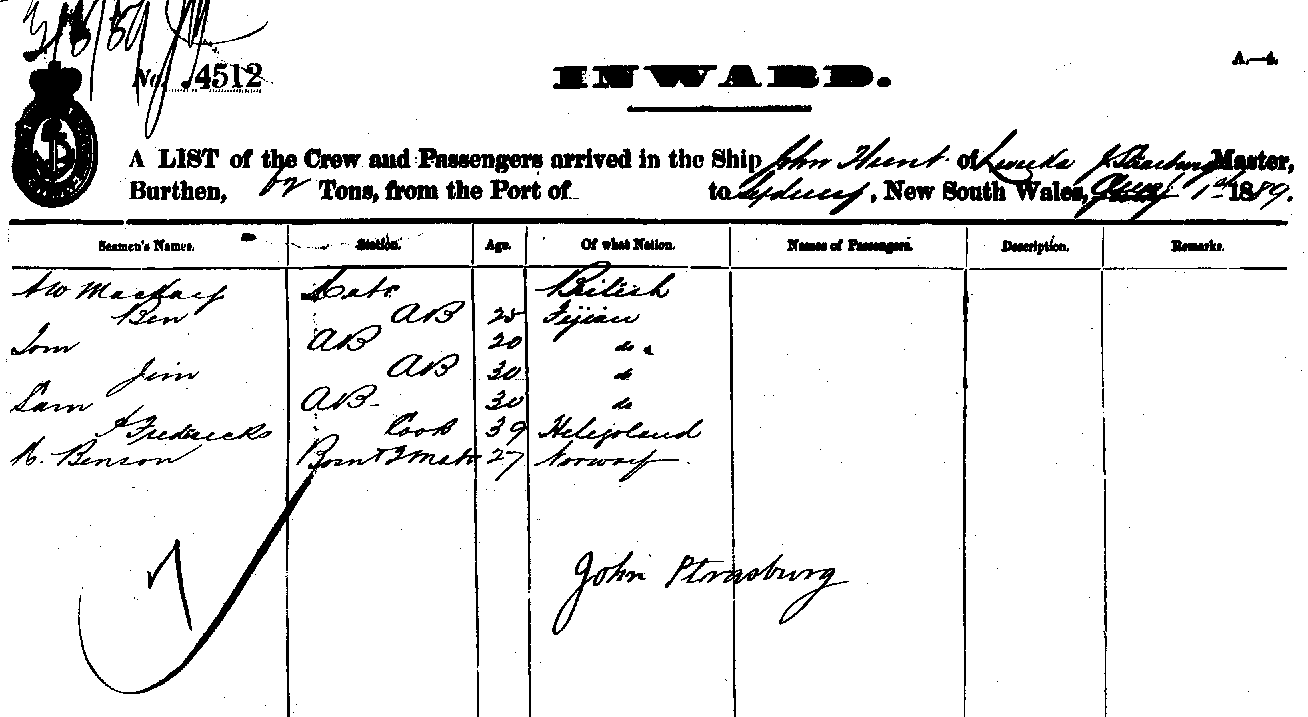 No. 4512
INWARD.
A.—4.
A LIST of the Crew and Passengers arrived in the Ship John Hunt of Levuka J Strasburg Master,
Burthen, Tons, from the Port of to Sydney, New South Wales, Aug 1st 1889.
Seamen's Names. Station. Age. Of what Nation. Names of Passengers. Description. Remarks.
Mackay Mate British
Ben AB 25 Fijian
Tom AB 20 do
Jim AB 30 do
Sam AB 30 do
Fredericks Cook 39 Heligoland
Benson 27 Norway
7
John Strasburg